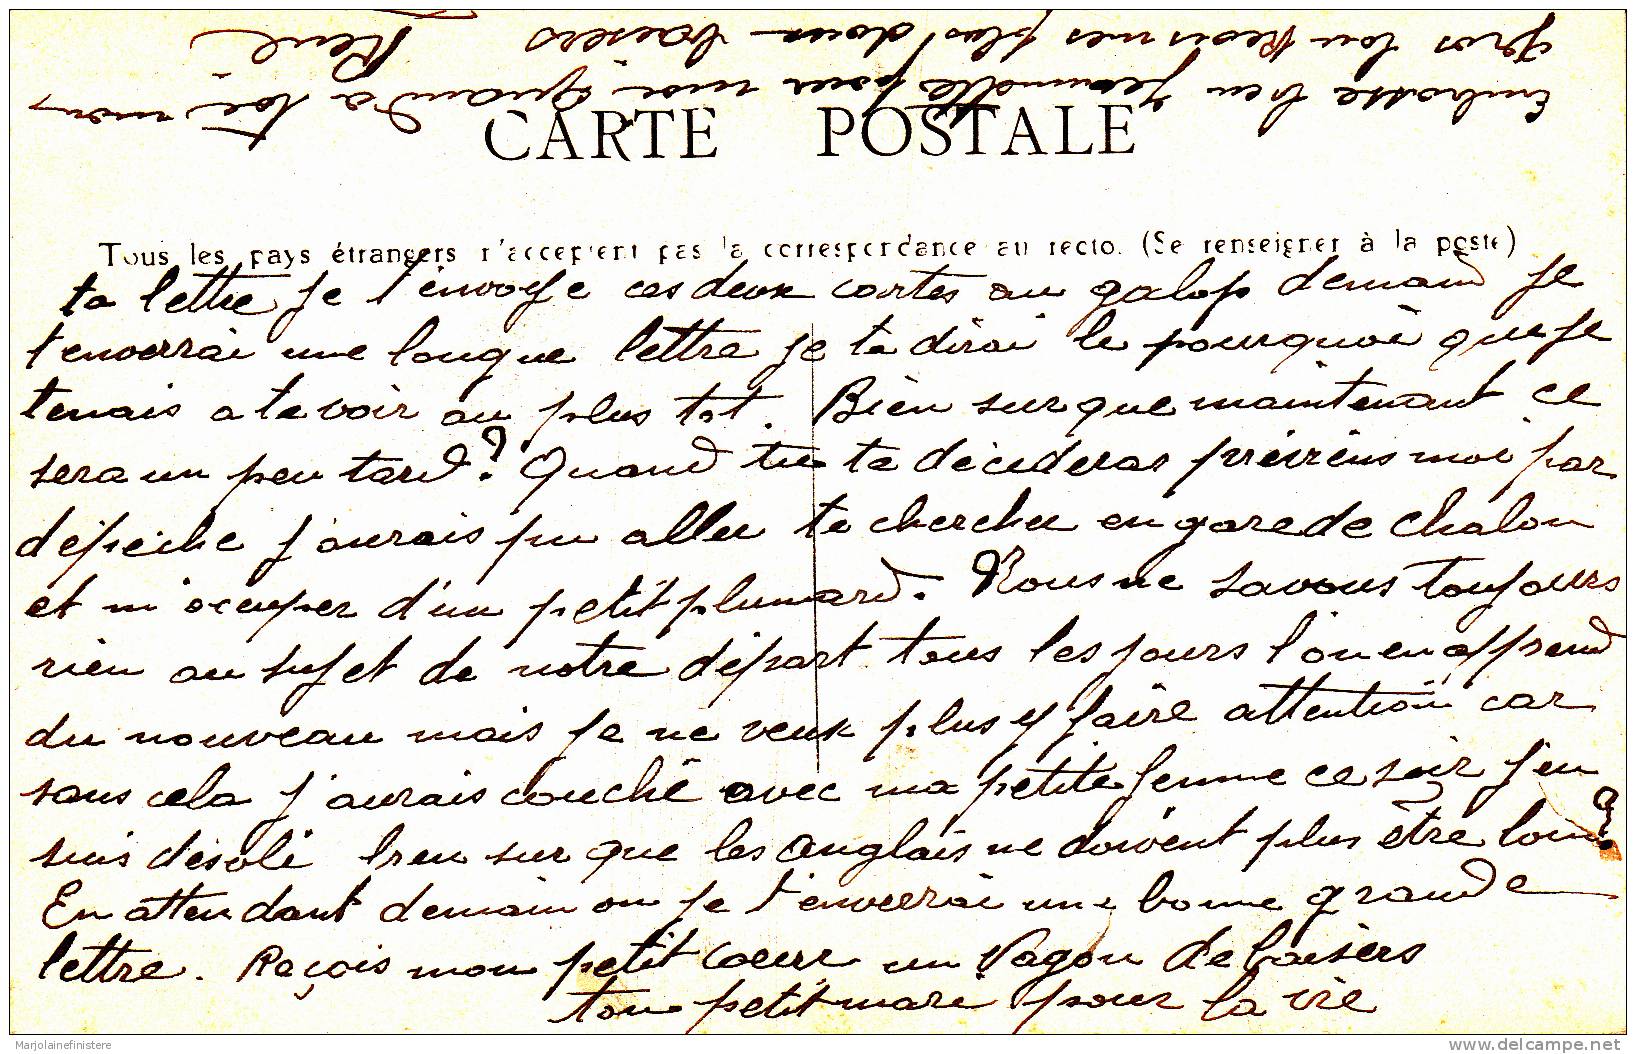 CARTE POSTALE
Tous les pays étrangers n'acceptent pas la correspondance au recto. (Se renseigner à la poste)
ta lettre je t'envoye ces deux cartes au galop demain je
t'enverrai une longue lettre je te dirai le pourquoi que je
tenais a te voir au plus tot. Bien sur que maintenant ce
sera un peu tard? Quand tu te décideras préviens moi par
dépêche j'aurais pu aller te chercher en gare de Chalon
et m'ocuper d'un petit plumard. Nous ne savons toujours
rien au sujet de notre départ tous les jours l'on en apprend
du nouveau mais je ne veux plus y faire attention car
sans cela j'aurais couché avec ma petite femme ce soir j'en
suis désolé bien sur que les Anglais ne doivent plus être loin?
En attendant demain ou je t'enverrai une bonne grande
lettre. Reçois mon petit coeur un Vagon de baisers
ton petit mari pour la vie
Embrasse bien Jeannette pour moi Quand a toi mon
gros lou Recois mes plus doux baisers René
Marjolainefinistere
www.delcampe.net